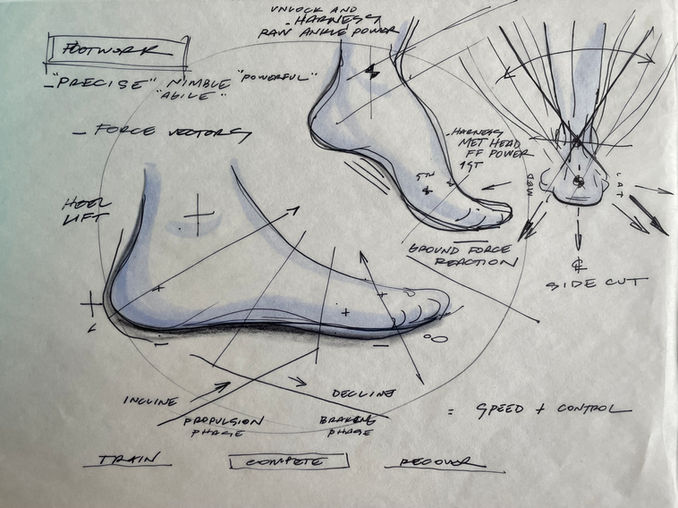 FOOTWORK
- "PRECISE" NIMBLE "POWERFUL"
"AGILE"
UNLOCK AND
- HARNESS
RAW ANKLE POWER
- FORCE VECTORS
HEEL
LIFT
- HARNESS
MET HEAD
FF POWER
1ST
5TH
MED
LAT
GROUND FORCE
REACTION
℄
SIDE CUT
INCLINE
DECLINE
PROPULSION
PHASE
BRAKING
PHASE
= SPEED + CONTROL
TRAIN
COMPETE
RECOVER